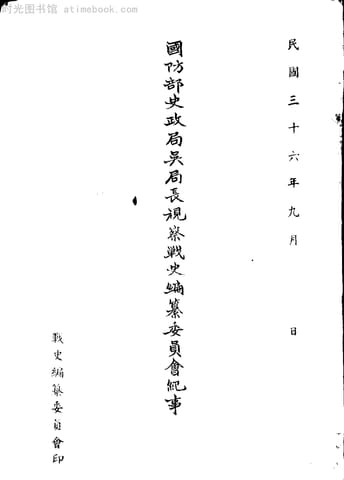 时光图书馆 atimebook.com
民國三十六年九月 日
國防部史政局吳局長視察戰史編纂委員會紀事
戰史編纂委員會印